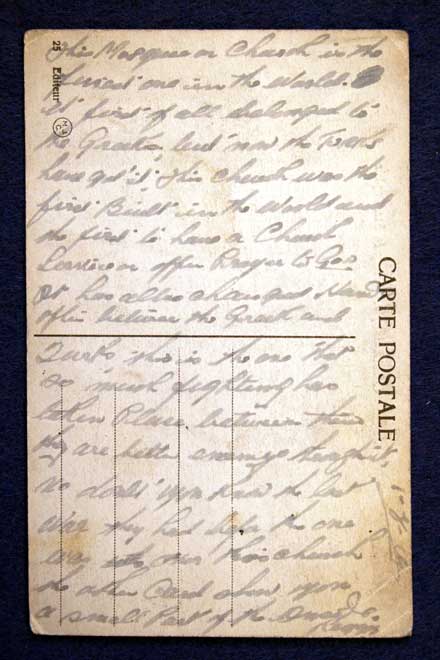 This Mosque or Church is the
one in the World.
it first of all belonged to
the Greeks, but now the Turks
have got it, This church was the
first Built in the World and
the first to have a Church
Service or offer Prayer to God
it has also changed
often between the Greek and
Turks, this is the one that
so much fighting has
taken Place between them
they are better enemys
no doubt you know the last
War they had
this church
the other Card show you
a small Part of the
CARTE POSTALE
25 Editeur